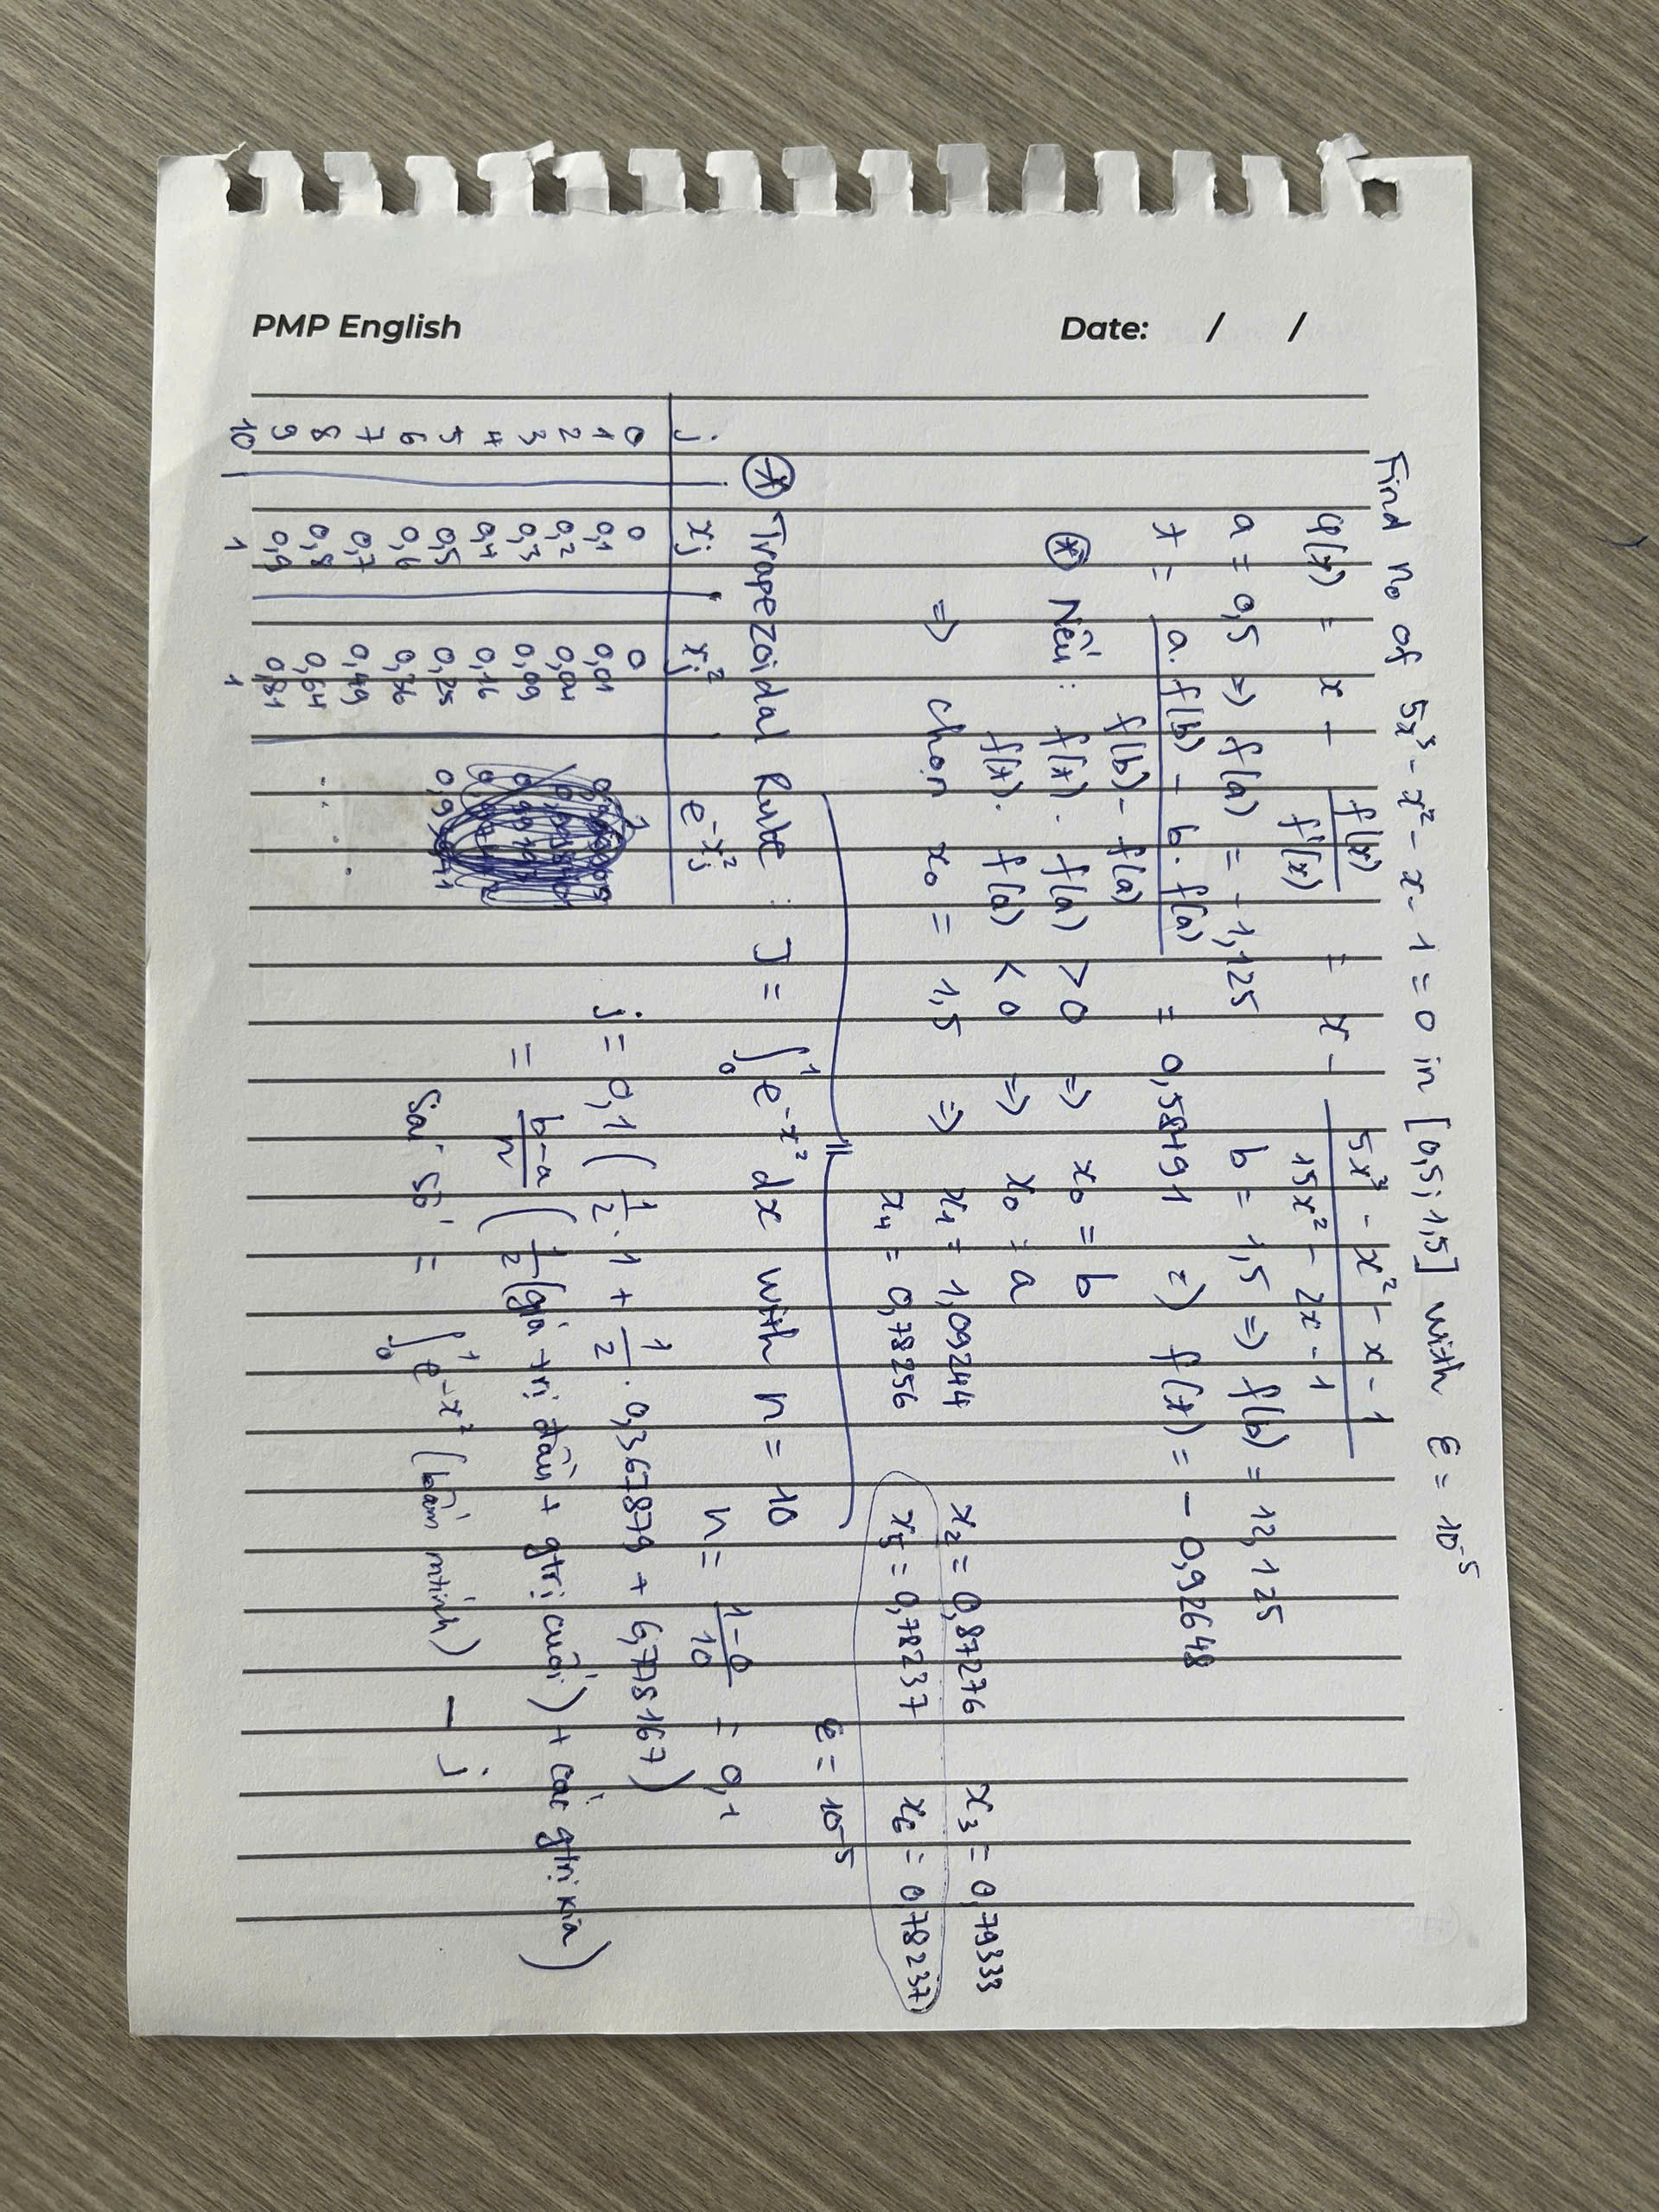 PMP English
Date: / /
Find n₀ of 5x³ - x² - x - 1 = 0 in [0,5; 1,5] with ε = 10⁻⁵
φ(x) = x - f(x)/f'(x) = x - (5x³ - x² - x - 1)/(15x² - 2x - 1)
a = 0,5 => f(a) = -1,125 b = 1,5 => f(b) = 12,125
x = (a.f(b) - b.f(a))/(f(b) - f(a)) = 0,58491 => f(x) = -0,92648
⊛ Nếu: f(x). f(a) > 0 => x₀ = b
f(x). f(a) < 0 => x₀ = a
=> chọn x₀ = 1,5 => x₁ = 1,09244 x₂ = 0,87276 x₃ = 0,79333
x₄ = 0,78256 x₅ = 0,78237 x₆ = 0,78237
ε = 10⁻⁵
⊛ Trapezoidal Rule: J = ∫₀¹ e^-x² dx with n = 10
n = (1-0)/10 = 0,1
j xj xj² e^-xj²
0 0 0
1 0,1 0,01
2 0,2 0,04
3 0,3 0,09
4 0,4 0,16
5 0,5 0,25
6 0,6 0,36
7 0,7 0,49
8 0,8 0,64
9 0,9 0,81
10 1 1
j = 0,1 (1/2 . 1 + 1/2 . 0,367879 + 6,778167)
= (b-a)/n (1/2 (giá trị đầu + gtrị cuối) + các gtrị kia)
Sai số = ∫₀¹ e^-x² (bấm mtính) - j